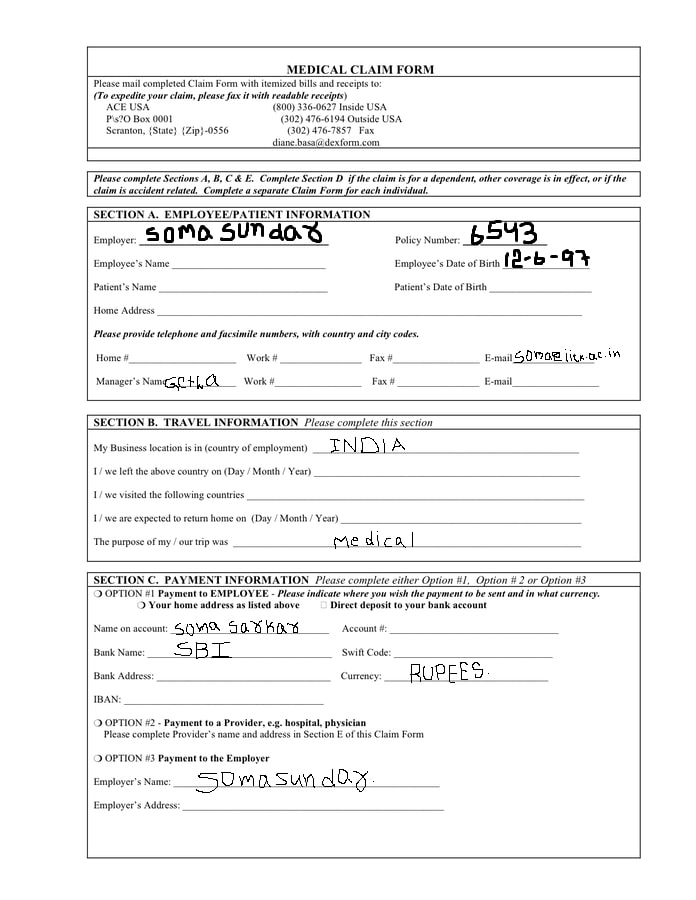 MEDICAL CLAIM FORM
Please mail completed Claim Form with itemized bills and receipts to:
(To expedite your claim, please fax it with readable receipts)
ACE USA (800) 336-0627 Inside USA
P\s?O Box 0001 (302) 476-6194 Outside USA
Scranton, {State} {Zip}-0556 (302) 476-7857 Fax
diane.basa@dexform.com
Please complete Sections A, B, C & E. Complete Section D if the claim is for a dependent, other coverage is in effect, or if the
claim is accident related. Complete a separate Claim Form for each individual.
SECTION A. EMPLOYEE/PATIENT INFORMATION
Employer: soma sundar Policy Number: 6543
Employee's Name Employee's Date of Birth 12-6-97
Patient's Name Patient's Date of Birth
Home Address
Please provide telephone and facsimile numbers, with country and city codes.
Home # Work # Fax # E-mail
Manager's Name Work # Fax # E-mail
SECTION B. TRAVEL INFORMATION Please complete this section
My Business location is in (country of employment) INDIA
I / we left the above country on (Day / Month / Year)
I / we visited the following countries
I / we are expected to return home on (Day / Month / Year)
The purpose of my / our trip was Medical
SECTION C. PAYMENT INFORMATION Please complete either Option #1, Option # 2 or Option #3
OPTION #1 Payment to EMPLOYEE - Please indicate where you wish the payment to be sent and in what currency.
Your home address as listed above Direct deposit to your bank account
Name on account: soma sarkar Account #:
Bank Name: SBI Swift Code:
Bank Address: Currency: RUPEES.
IBAN:
OPTION #2 - Payment to a Provider, e.g. hospital, physician
Please complete Provider's name and address in Section E of this Claim Form
OPTION #3 Payment to the Employer
Employer's Name: Soma sundar.
Employer's Address: